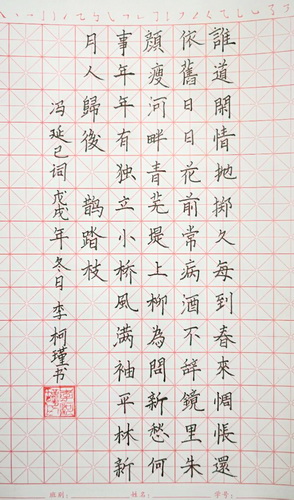 誰道閑情抛擲久每到春來惆悵還
依舊日日花前常病酒不辭鏡里朱
顔瘦河畔青芜堤上柳為問新愁何
事年年有独立小桥風满袖平林新
月人歸後 鹊踏枝
冯延己词戊戌年冬日李柯瑾书
班别: 姓名: 学号: